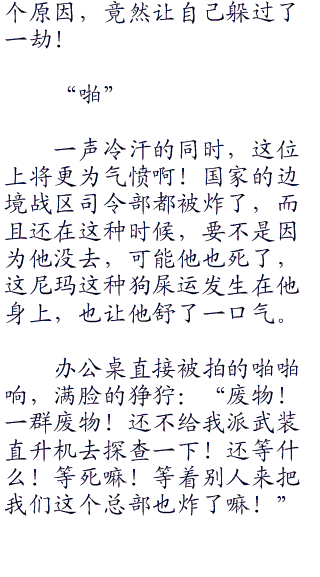 个原因，竟然让自己躲过了
一劫！
“啪”
一声冷汗的同时，这位
上将更为气愤啊！国家的边
境战区司令部都被炸了，而
且还在这种时候，要不是因
为他没去，可能他也死了，
这尼玛这种狗屎运发生在他
身上，也让他舒了一口气。
办公桌直接被拍的啪啪
响，满脸的狰狞：“废物！
一群废物！还不给我派武装
直升机去探查一下！还等什
么！等死嘛！等着别人来把
我们这个总部也炸了嘛！”